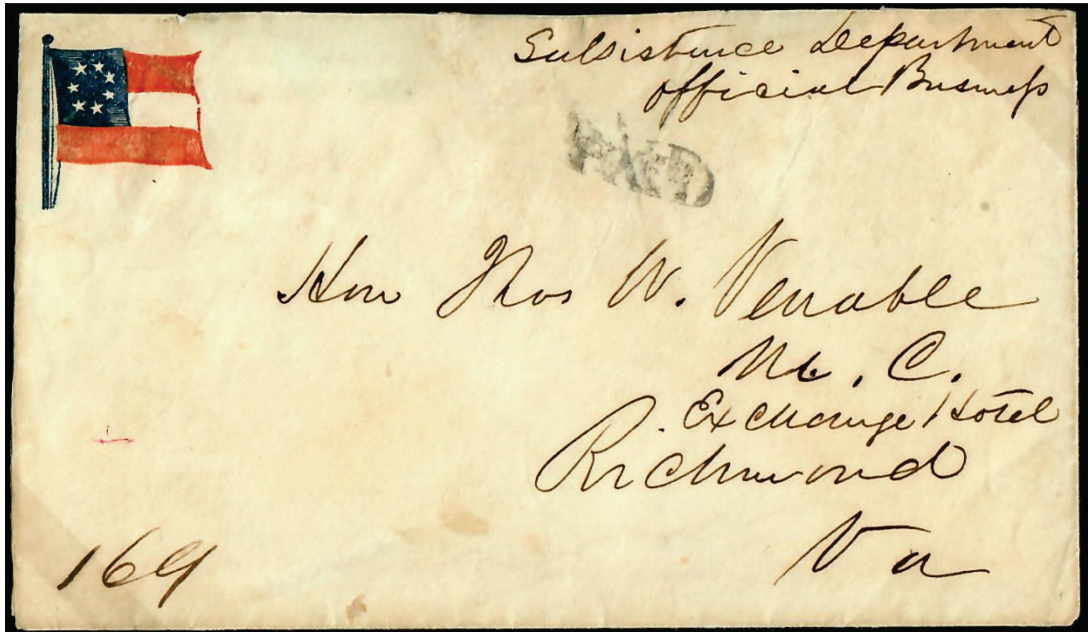 Subsistence Department
Official Business
PAID
Hon Thos W. Venable
M. C.
Exchange Hotel
Richmond
Va
169